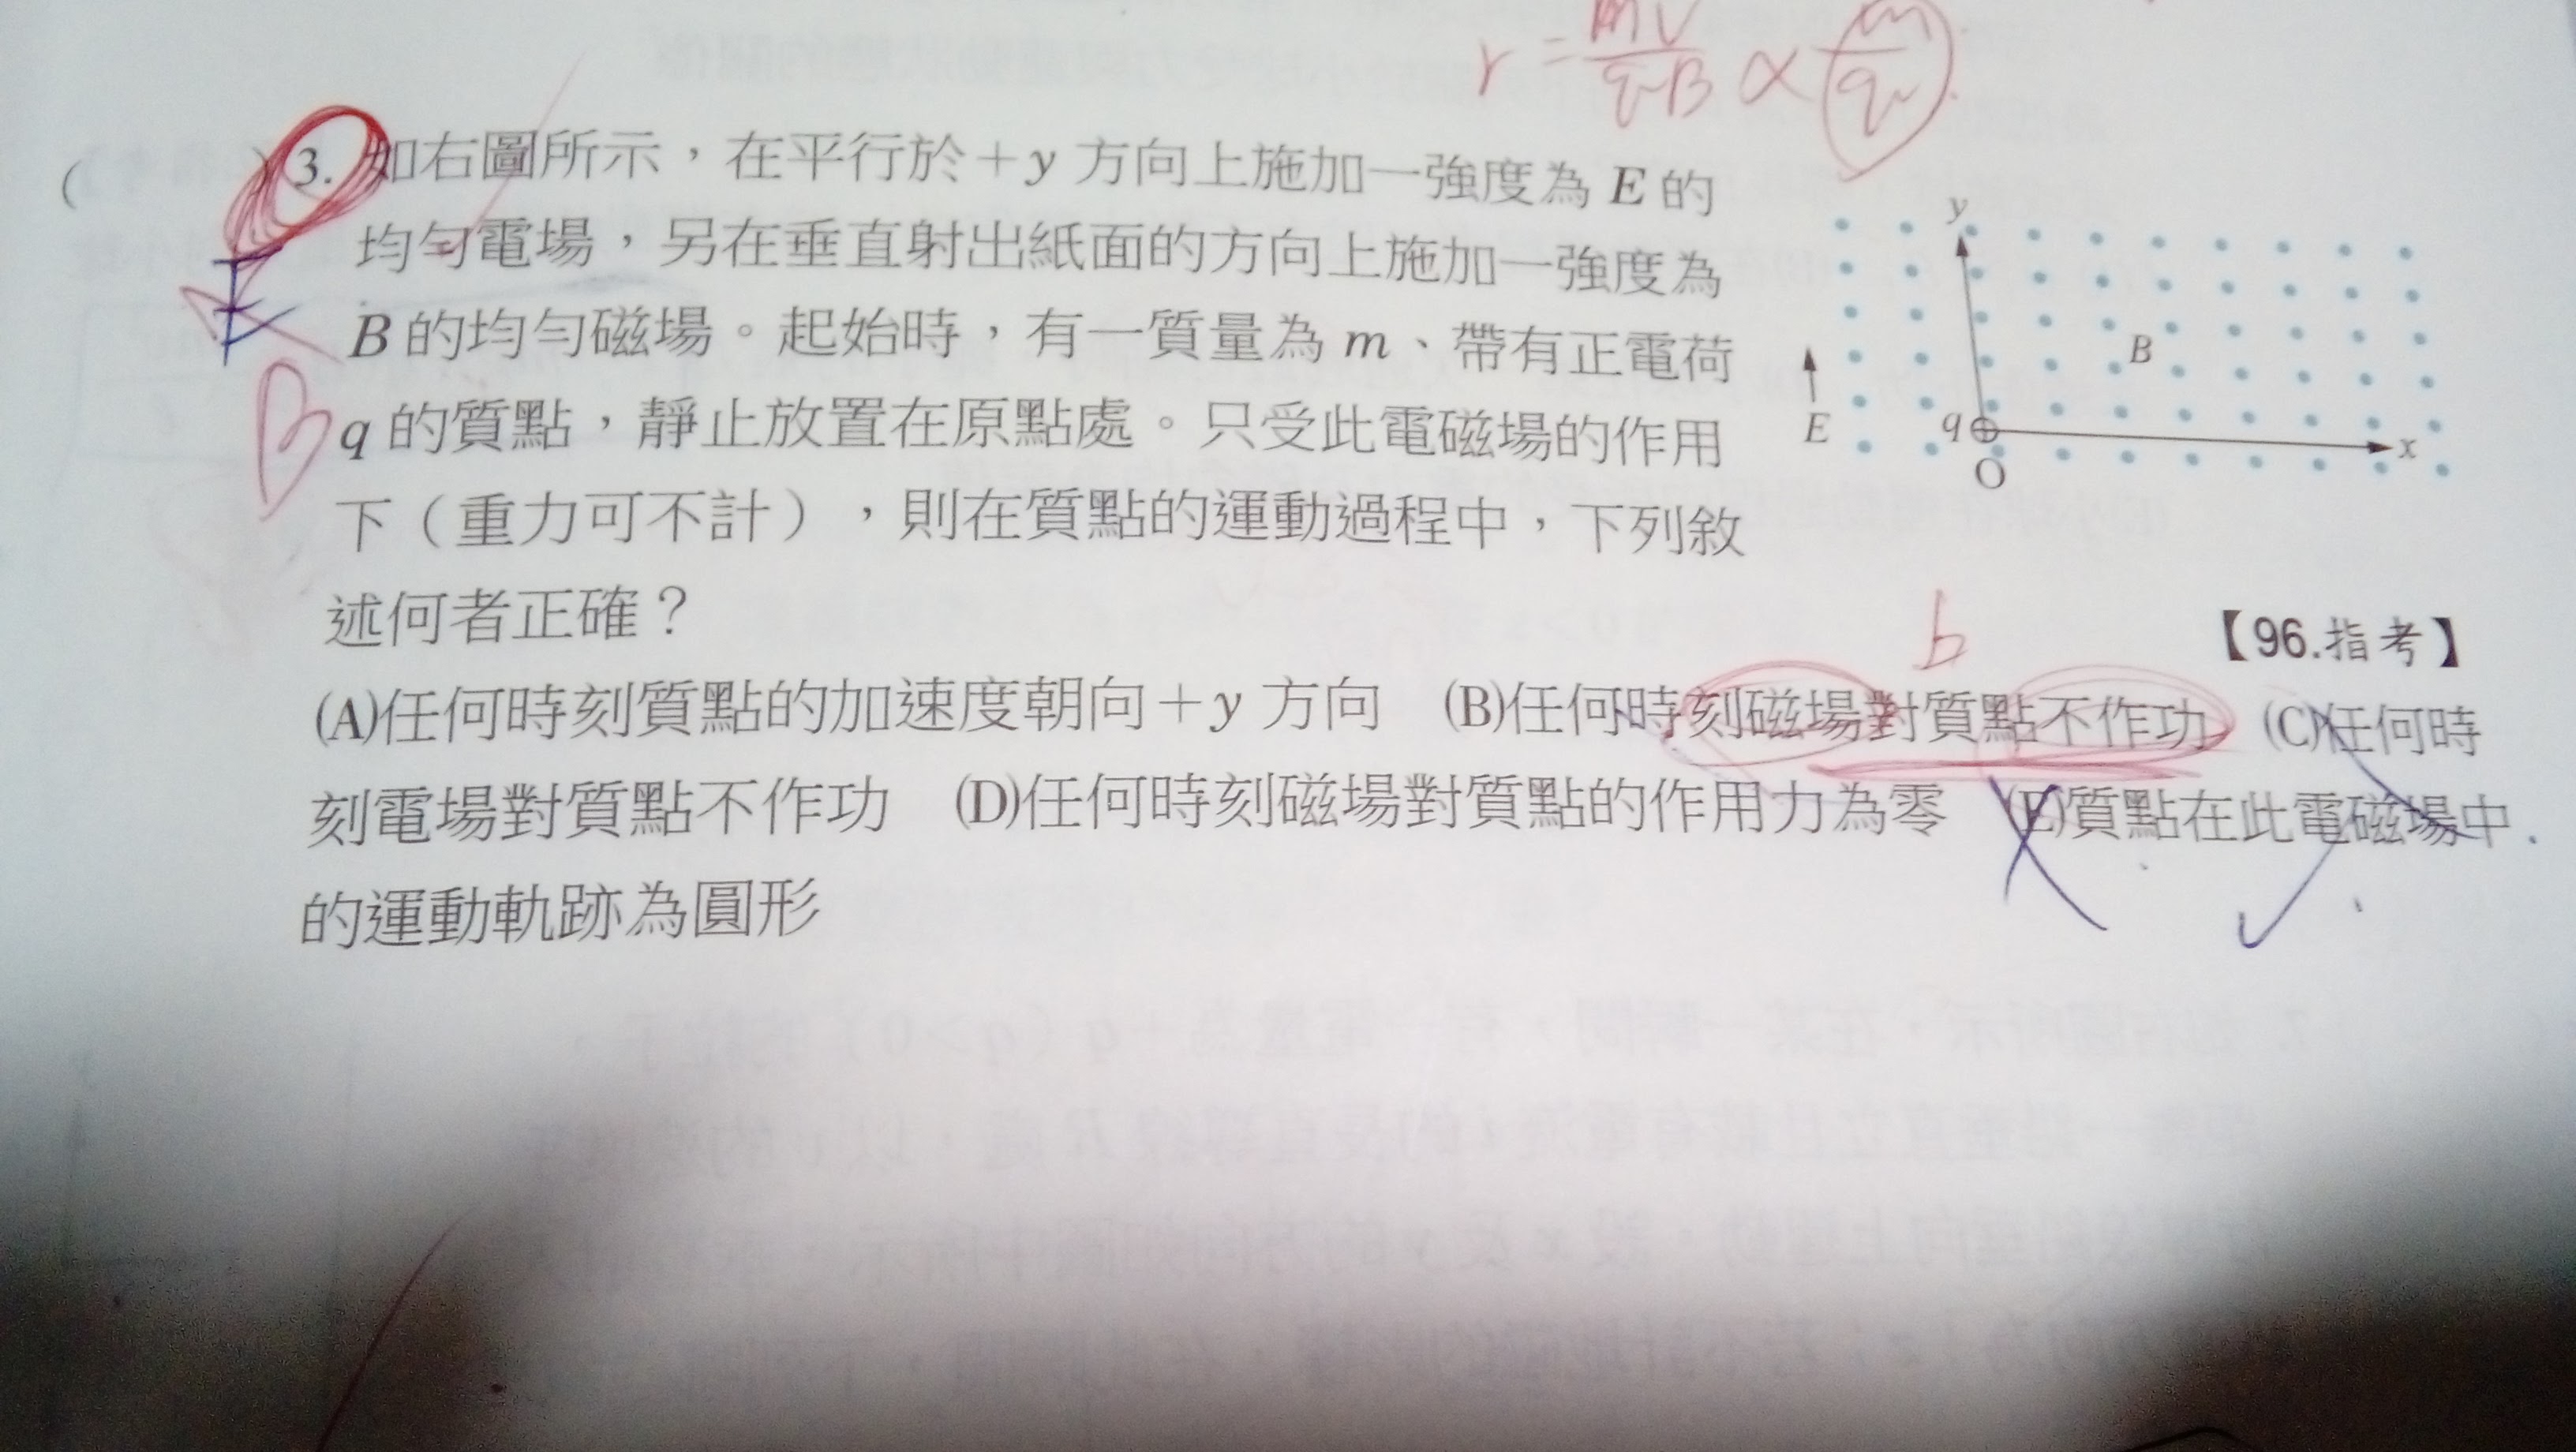 r = mv/qB ∝ m/q
( ) 3. 如右圖所示，在平行於＋y 方向上施加一強度為 E 的
均勻電場，另在垂直射出紙面的方向上施加一強度為
B 的均勻磁場。起始時，有一質量為 m、帶有正電荷
q 的質點，靜止放置在原點處。只受此電磁場的作用
下（重力可不計），則在質點的運動過程中，下列敘
述何者正確？
【96.指考】
(A)任何時刻質點的加速度朝向＋y 方向 (B)任何時刻磁場對質點不作功 (C)任何時
刻電場對質點不作功 (D)任何時刻磁場對質點的作用力為零 (E)質點在此電磁場中
的運動軌跡為圓形
y
B
E
q
x
O
B
b